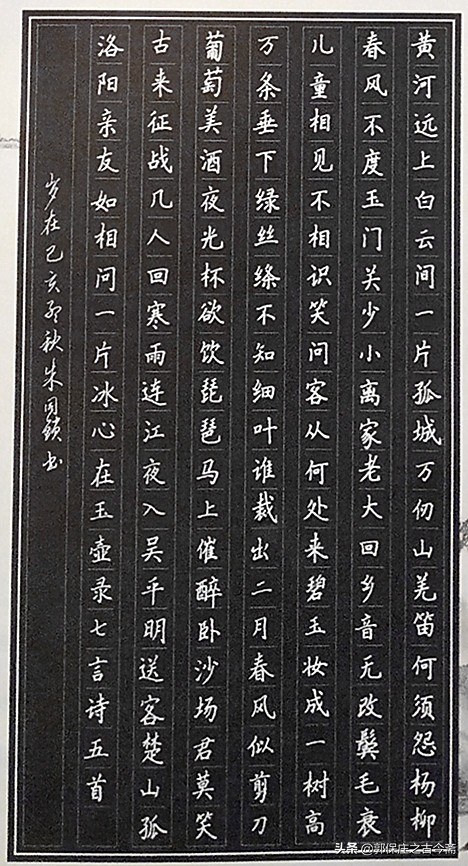 黄河远上白云间一片孤城万仞山羌笛何须怨杨柳
春风不度玉门关少小离家老大回乡音无改鬓毛衰
儿童相见不相识笑问客从何处来碧玉妆成一树高
万条垂下绿丝绦不知细叶谁裁出二月春风似剪刀
葡萄美酒夜光杯欲饮琵琶马上催醉卧沙场君莫笑
古来征战几人回寒雨连江夜入吴平明送客楚山孤
洛阳亲友如相问一片冰心在玉壶录七言诗五首
岁在己亥秋朱书
头条 @郭保庄之古今斋